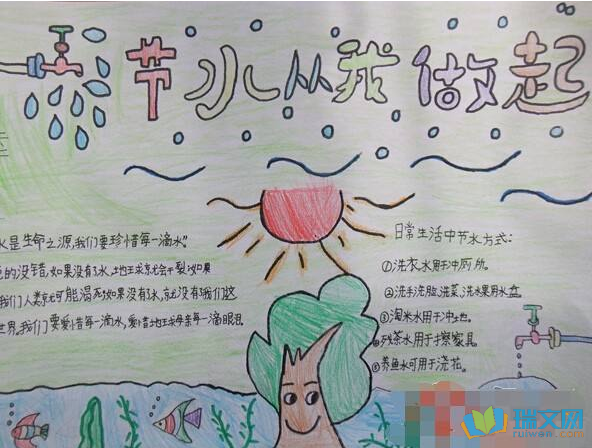 节水从我做起
水是生命之源,我们要珍惜每一滴水"
的没错,如果没有了水,地球就会干裂,如果
我们人就可能渴死,如果没有了水,就没有我们这
世界。我们要爱惜每一滴水,爱惜地球母亲每一滴眼泪
日常生活中节水方式:
①洗衣水用于冲厕所。
②洗手洗脸、洗菜、洗水果用水盆
③淘米水用于冲土地。
④残茶水用于擦家具。
⑤养鱼水可用于浇花。
瑞文网
ruiwen.com